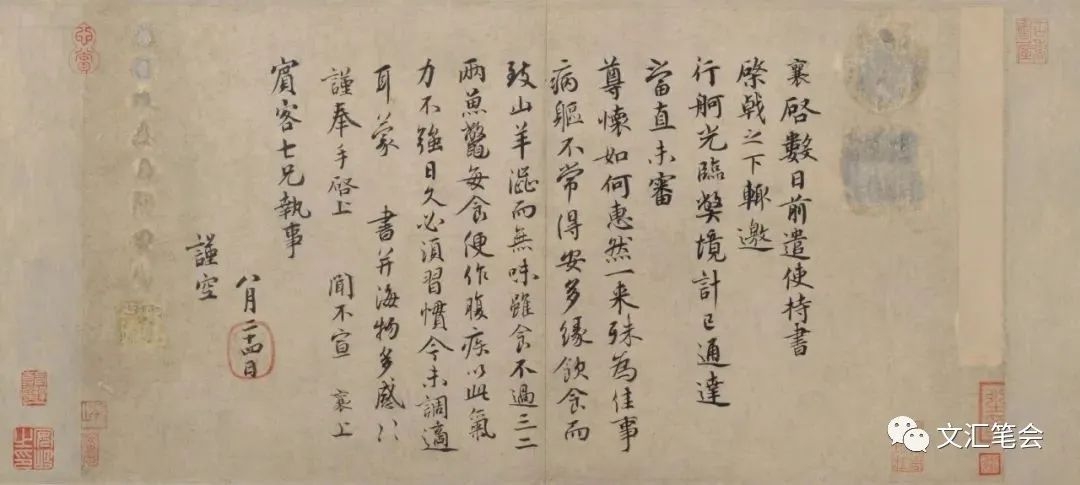 襄啓數日前遣使持書
棨戟之下輙邀
行舸光臨獘境計已通達
當直未審
尊懷如何惠然一来殊為佳事
病軀不常得安多緣飲食而
致山羊澁而無味雖食不過三二
兩魚鼈每食便作腹疾以此氣
力不強日久必須習慣今未調適
耳蒙 書并海物多感〻
謹奉手啓上 聞不宣 襄上
賔客七兄執事
八月二十四日
謹空
文汇笔会